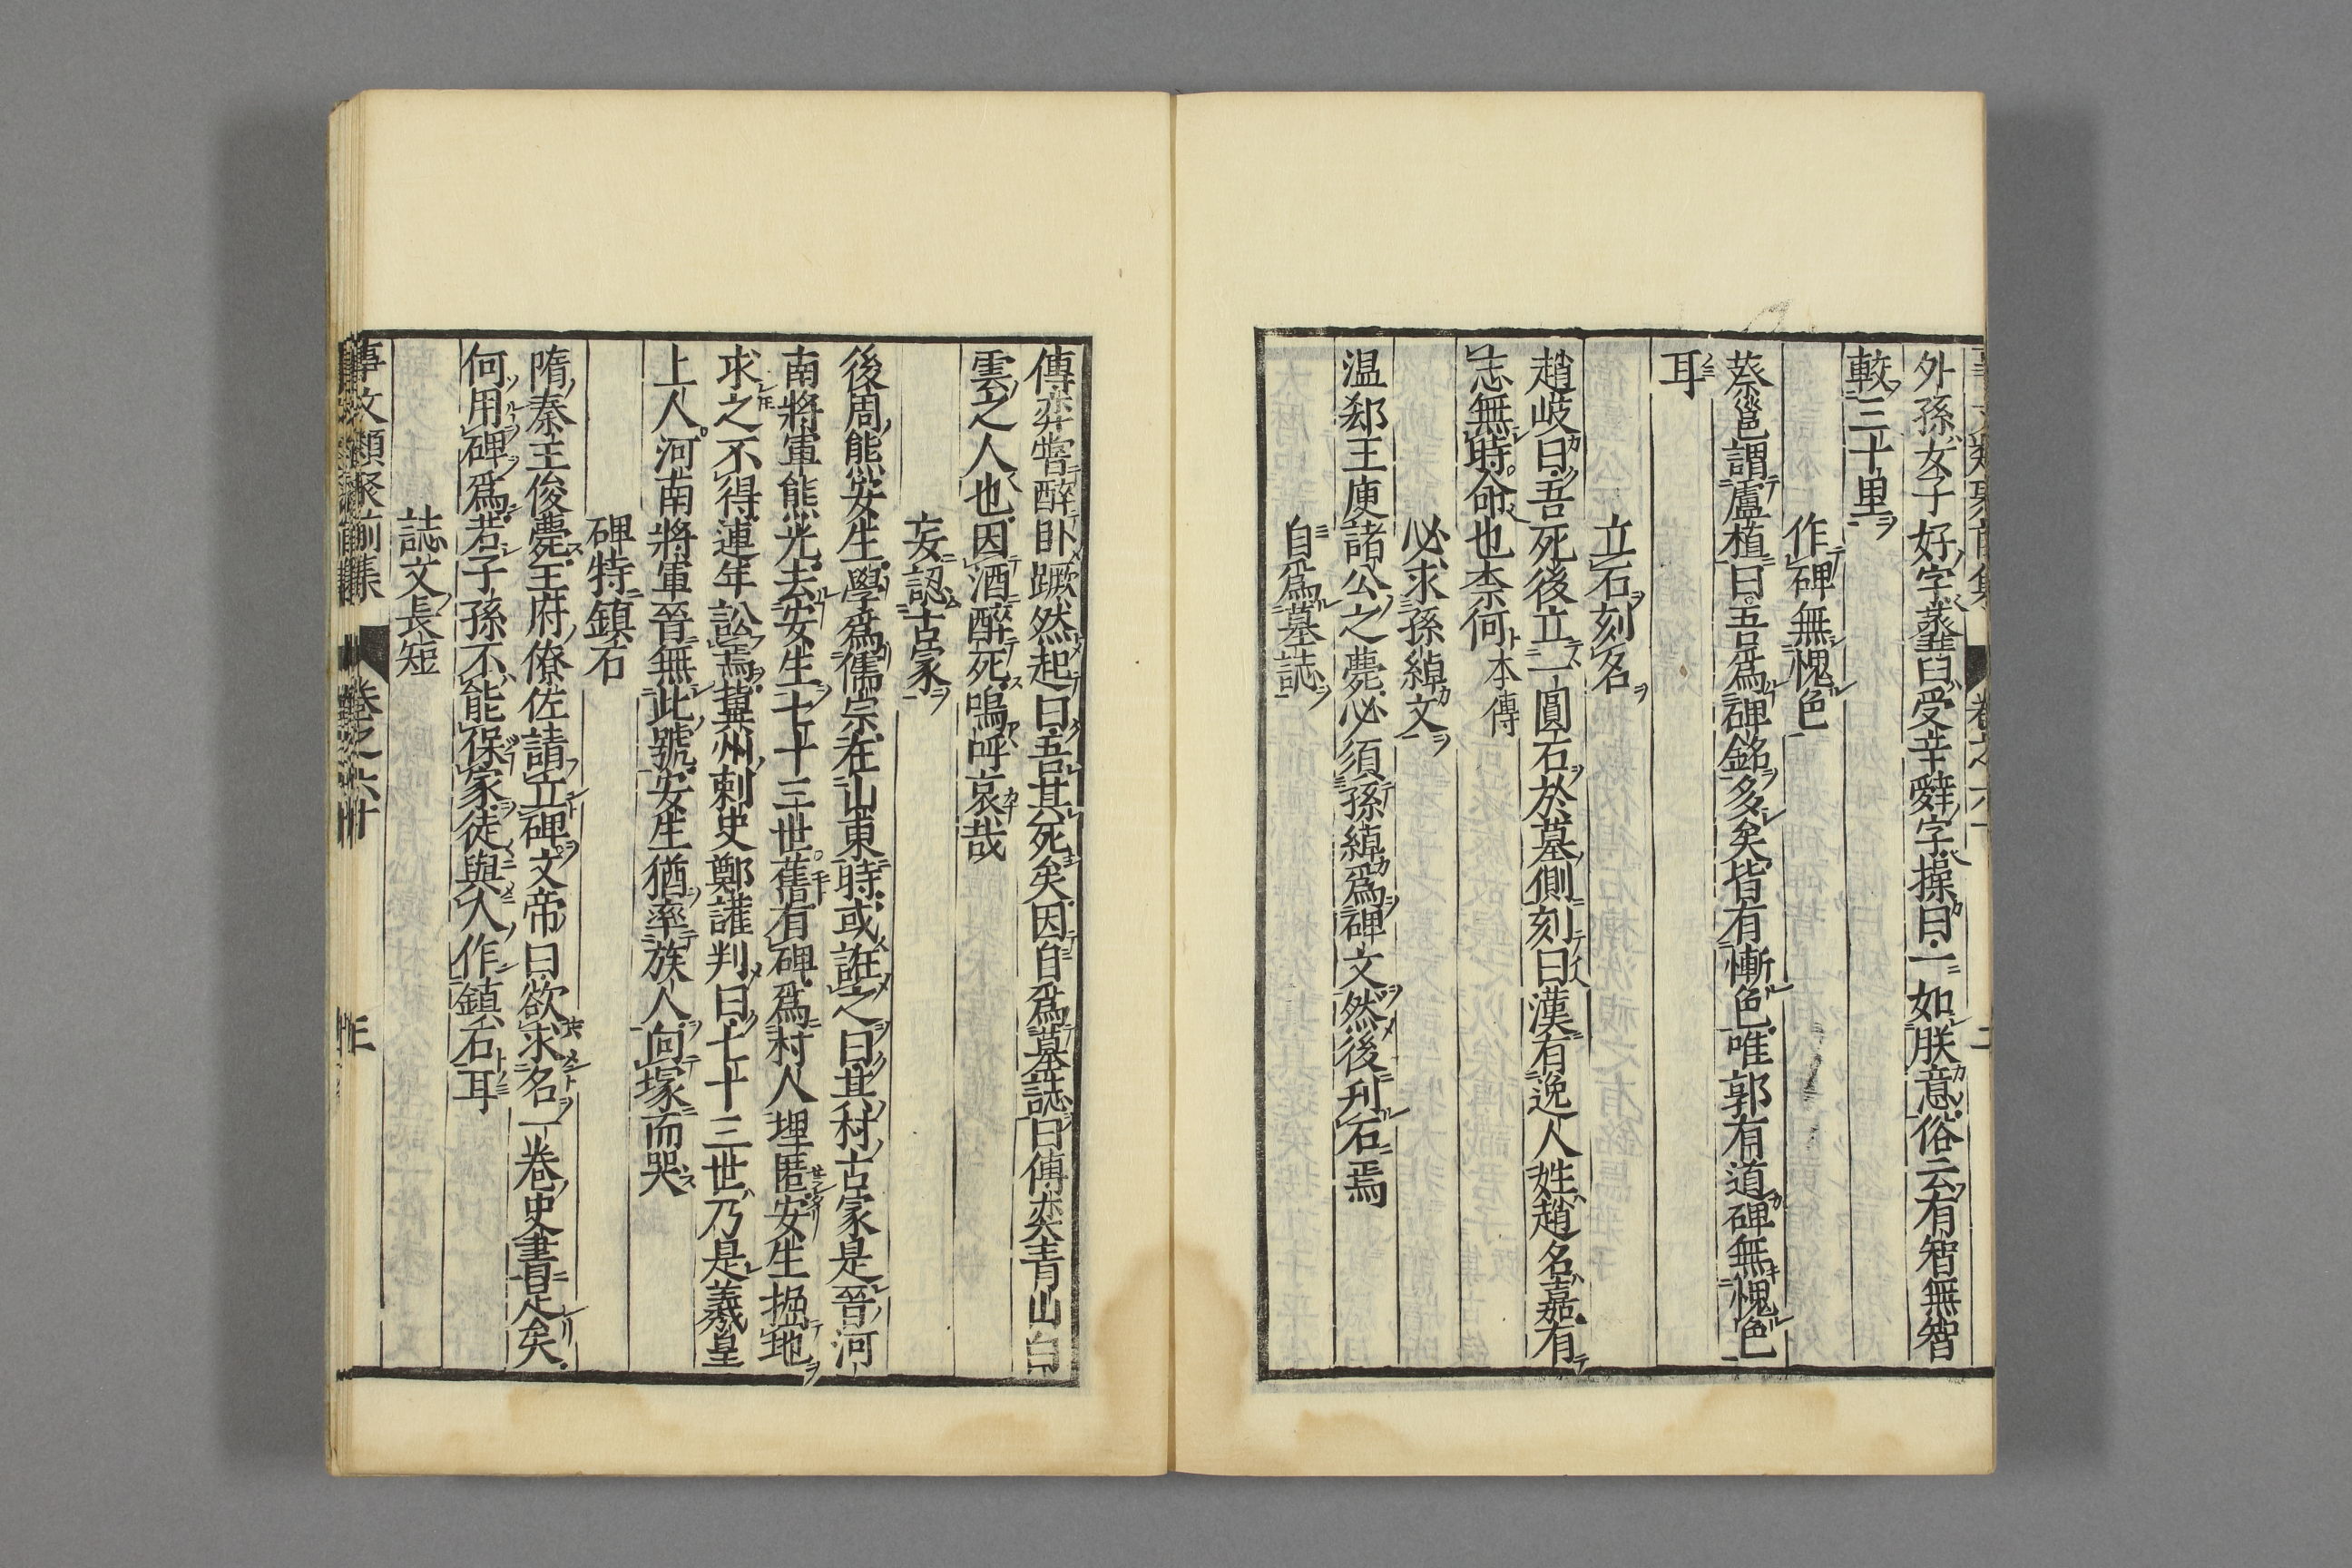 外孫女子好字虀臼受辛辤字操曰一如朕意俗云有智無智
較三十里
作碑無愧色
蔡邕謂盧植曰吾爲碑銘多矣皆有慚色唯郭有道碑無愧色
耳
立石刻名
趙岐曰吾死後立一圓石於墓側刻曰漢有逸人姓趙名嘉有
志無時命也柰何 本傳
必求孫綽文
温郄王庾諸公之薨必須孫綽爲碑文然後刋石焉
自爲墓誌
傅弈甞醉卧蹶然起曰吾其死矣因自爲墓誌曰傅奕青山白
雲之人也因酒醉死嗚呼哀哉
妄認古冢
後周熊安生學爲儒宗在山東時或誑之曰其村古冢是晉河
南將軍熊光去安生七十三世舊有碑爲村人埋匿安生掘地
求之不得連年訟焉冀州刺史鄭讙判曰七十三世乃是羲皇
上人河南將軍晉無此號安生猶率族人向塚而哭
碑特鎮石
隋秦王俊薨王府僚佐請立碑文帝曰欲求名一卷史書足矣
何用碑爲若子孫不能保家徒與人作鎮石耳
誌文長短
事文類聚前集 卷之六十